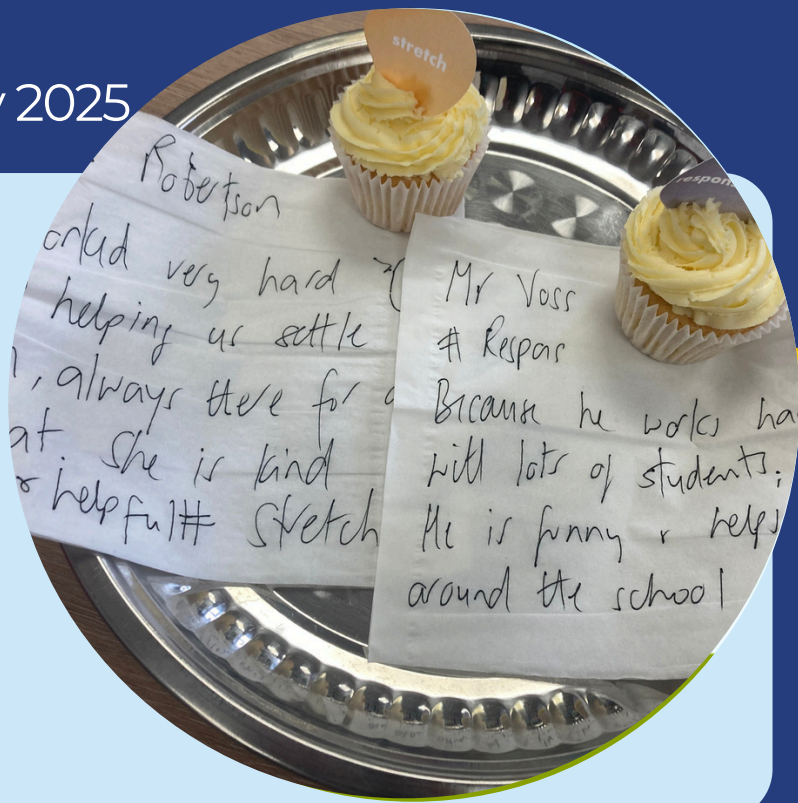 2025
stretch
respon
Robertson
orked very hard
helping us settle
, always there for
at. She is kind
r helpful# Stretch
Mr Voss
# Respons
Because he works ha
with lots of students.
He is funny & helps
around the school